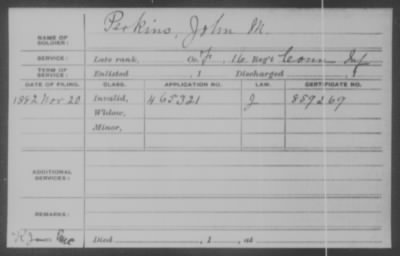 Perkins, John M.
NAME OF
SOLDIER:
SERVICE: Late rank, Co. F, 16 Reg't Conn Inf
TERM OF
SERVICE: Enlisted , 1 Discharged , 1
DATE OF FILING. CLASS. APPLICATION NO. LAW. CERTIFICATE NO.
1882 Nov 20 Invalid, 465321 J 859269
Widow,
Minor,
ADDITIONAL
SERVICES:
REMARKS:
Died , 1 , at